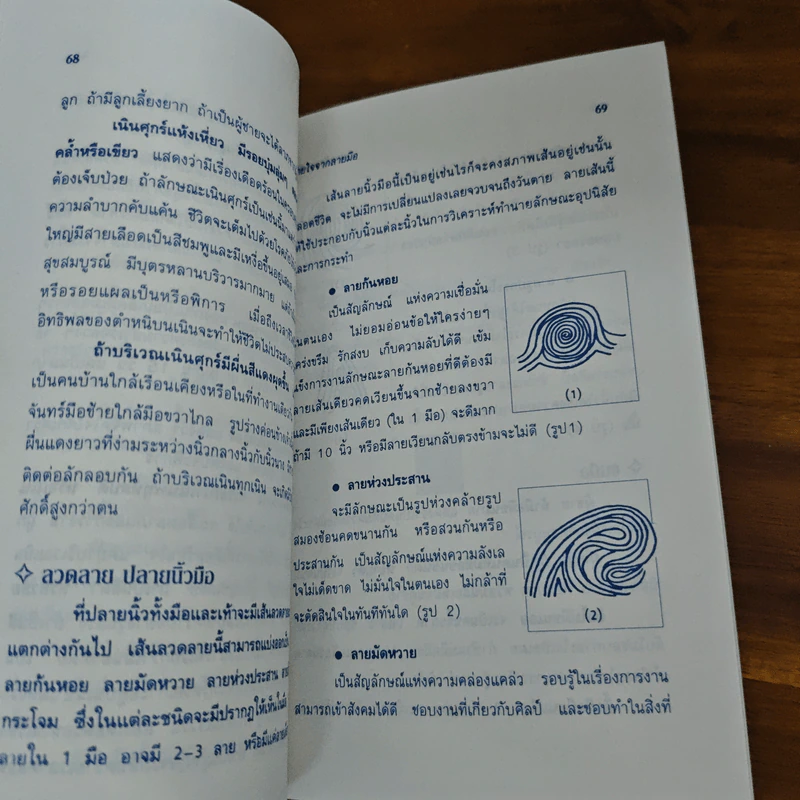 68
ลูก ถ้ามีลูกเลี้ยงยาก ถ้าเป็นผู้ชายจะได้
เนินศุกร์แห้งเหี่ยว มีรอยบุ๋ม
คล้ำหรือเขียว แสดงว่ามีเรื่องเดือดร้อน
ต้องเจ็บป่วย ถ้าลักษณะเนินศุกร์เป็นเช่นนี้
ความลำบากคับแค้น ชีวิตจะเต็มไปด้วย
ใหญ่มีสายเลือดเป็นสีชมพูและมีเหงื่อขึ้นอยู่
สุขสมบูรณ์ มีบุตรหลานบริวารมากมาย
หรือรอยแผลเป็นหรือพิการ เมื่อถึงเวลา
อิทธิพลของตำหนิบนเนินจะทำให้ชีวิตไม่
ถ้าบริเวณเนินศุกร์มีผื่นสีแดงผุดขึ้น
เป็นคนบ้านใกล้เรือนเคียงหรือในที่ทำงาน
จันทร์มือซ้ายใกล้มือขวาไกล รูปร่างค่อนข้าง
ผื่นแดงยาวที่ง่ามระหว่างนิ้วกลางนิ้วกับนิ้วนาง
ติดต่อลักลอบกัน ถ้าบริเวณเนินทุกเนิน
ศักดิ์สูงกว่าตน
✧ ลวดลาย ปลายนิ้วมือ
ที่ปลายนิ้วทั้งมือและเท้าจะมีเส้น
แตกต่างกันไป เส้นลวดลายนี้สามารถแบ่งออก
ลายก้นหอย ลายมัดหวาย ลายห่วงประสาน
กระโจม ซึ่งในแต่ละชนิดจะมีปรากฏให้เห็น
ลายใน 1 มือ อาจมี 2-3 ลาย หรือมี
69
จากลายมือ
เส้นลายนิ้วมือนี้เป็นอยู่เช่นไรก็จะคงสภาพเส้นอยู่เช่นนั้น
ตลอดชีวิต จะไม่มีการเปลี่ยนแปลงเลยจวบจนถึงวันตาย ลายเส้นนี้
ใช้ประกอบกับนิ้วแต่ละนิ้วในการวิเคราะห์ทำนายลักษณะอุปนิสัย
และการกระทำ
● ลายก้นหอย
เป็นสัญลักษณ์ แห่งความเชื่อมั่น
ในตนเอง ไม่ยอมอ่อนข้อให้ใครง่ายๆ
เคร่งขรึม รักสงบ เก็บความลับได้ดี เข้ม
แข็งการงานลักษณะลายก้นหอยที่ดีต้องมี
ลายเส้นเดียวคดเวียนขึ้นจากซ้ายลงขวา
และมีเพียงเส้นเดียว (ใน 1 มือ) จะดีมาก
ถ้ามี 10 นิ้ว หรือมีลายเวียนกลับตรงข้ามจะไม่ดี (รูป 1)
(1)
● ลายห่วงประสาน
จะมีลักษณะเป็นรูปห่วงคล้ายรูป
สมองซ้อนคดขนานกัน หรือสวนกันหรือ
ประสานกัน เป็นสัญลักษณ์แห่งความลังเล
ใจไม่เด็ดขาด ไม่มั่นใจในตนเอง ไม่กล้าที่
จะตัดสินใจในทันทีทันใด (รูป 2)
(2)
● ลายมัดหวาย
เป็นสัญลักษณ์แห่งความคล่องแคล่ว รอบรู้ในเรื่องการงาน
สามารถเข้าสังคมได้ดี ชอบงานที่เกี่ยวกับศิลป์ และชอบทำในสิ่งที่